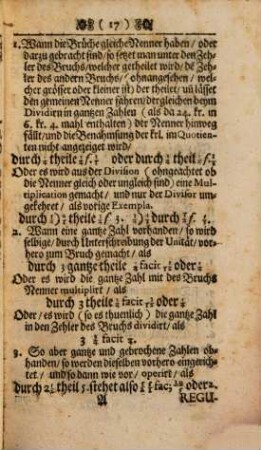 (17)
1. Wann die Brüche gleiche Nenner haben / oder
darzu gebracht sind / so setzet man unter den Zeh-
ler des Bruchs / welcher getheilet wird / die Zeh-
ler des andern Bruchs / ohnangesehen / wel-
cher grösser oder kleiner ist) der theilet / uñ lässet
den gemeinen Nenner fahren / dergleichen beym
Dividirn in gantzen Zahlen (als da 24. kr. in
6. kr. 4. mahl enthalten) der Nenner hinweg
fällt / und die Benahmsung der krl. im Quotien-
ten nicht angezeiget wird /
durch theile oder durch theil
Oder es wird aus der Division (ohngeachtet ob
die Nenner gleich oder ungleich sind) eine Mul-
tiplication gemacht / und nur der Divisor um-
gekehret / als vorige Exempla.
durch theile durch
2. Wann eine gantze Zahl vorhanden / so wird
selbige / durch Unterschreibung der Unität / vot-
hero zum Bruch gemacht / als
durch 3 gantze theile facit oder
Oder es wird die gantze Zahl mit des Bruchs
Nenner multiplirt / als
durch 3 theile facit oder
Oder / es wird (so es thuenlich) die gantze Zahl
in den Zehler des Bruchs dividirt / als
3 facit
3. So aber gantze und gebrochene Zahlen ob-
handen / so werden dieselben vorhero eingerich-
tet / und so dann wie vor / operirt / als
durch theil 5. stehet also fac; oder
A REGU-